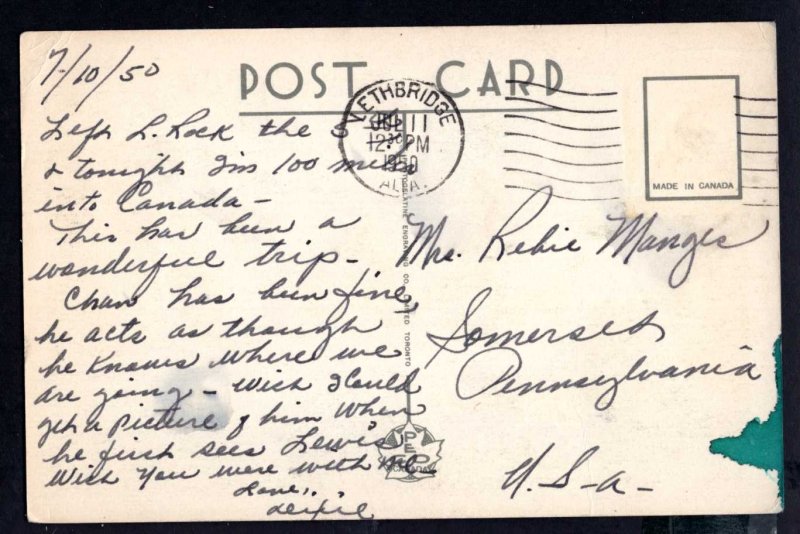 7/10/50
POST CARD
LETHBRIDGE
JUL 11
12 30 PM
1950
ALTA.
MADE IN CANADA
Left L. Rock the
& tonight I'm 100 miles
into Canada -
This has been a
wonderful trip -
Chaw has been fine,
he acts as though
he knows where we
are going - wish I could
get a picture of him when
he first sees Lewis
Wish you were with me -
Love,
Mrs. Rebie Manges
Somerset
Pennsylvania
U.S.a-
PECO
CANADA